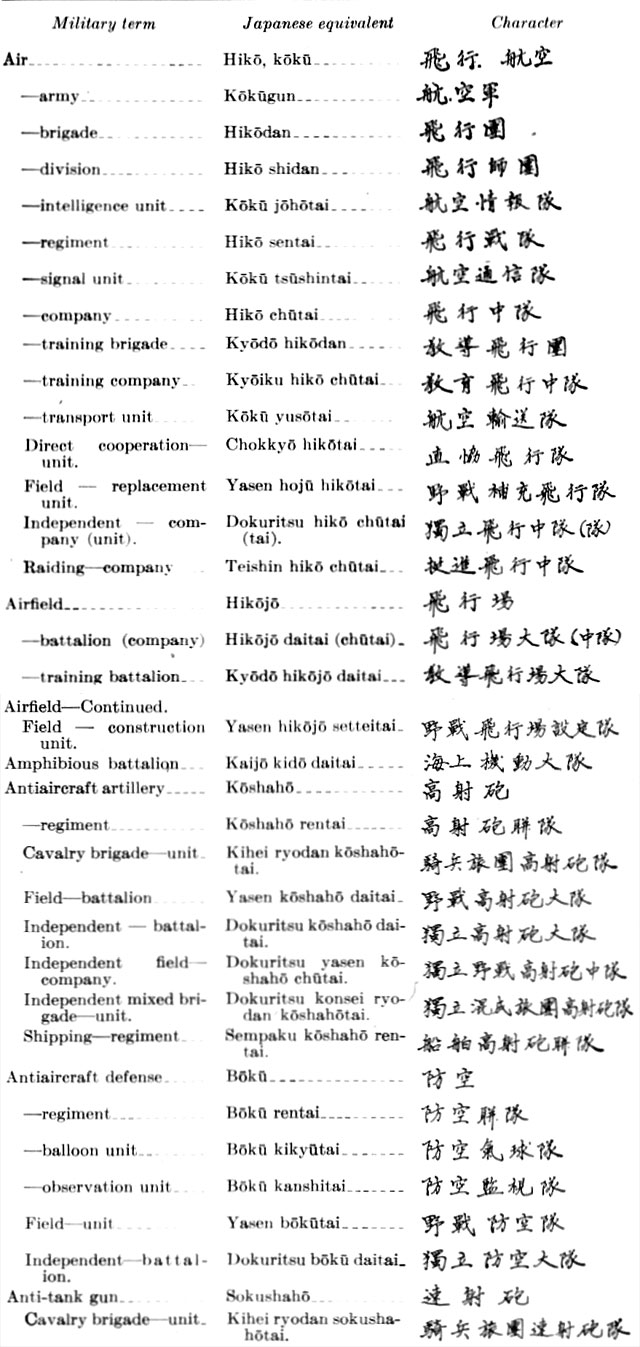 Military term Japanese equivalent Character
Air Hikō, kōkū 飛行. 航空
—army Kōkūgun 航空軍
—brigade Hikōdan 飛行團
—division Hikō shidan 飛行師團
—intelligence unit Kōkū jōhōtai 航空情報隊
—regiment Hikō sentai 飛行戰隊
—signal unit Kōkū tsūshintai 航空通信隊
—company Hikō chūtai 飛行中隊
—training brigade Kyōdō hikōdan 教導飛行團
—training company Kyōiku hikō chūtai 教育飛行中隊
—transport unit Kōkū yusōtai 航空輸送隊
Direct cooperation— Chokkyō hikōtai 直協飛行隊
unit.
Field — replacement Yasen hojū hikōtai 野戰補充飛行隊
unit.
Independent — com- Dokuritsu hikō chūtai 獨立飛行中隊(隊)
pany (unit). (tai).
Raiding—company Teishin hikō chūtai 挺進飛行中隊
Airfield Hikōjō 飛行場
—battalion (company) Hikōjō daitai (chūtai) 飛行場大隊(中隊)
—training battalion Kyōdō hikōjō daitai 教導飛行場大隊
Airfield—Continued.
Field — construction Yasen hikōjō setteitai 野戰飛行場設定隊
unit.
Amphibious battalion Kaijō kidō daitai 海上機動大隊
Antiaircraft artillery Kōshahō 高射砲
—regiment Kōshahō rentai 高射砲聯隊
Cavalry brigade—unit Kihei ryodan kōshahō- 騎兵旅團高射砲隊
tai.
Field—battalion Yasen kōshahō daitai 野戰高射砲大隊
Independent — battal- Dokuritsu kōshahō dai- 獨立高射砲大隊
ion. tai.
Independent field— Dokuritsu yasen kō- 獨立野戰高射砲中隊
company. shahō chūtai.
Independent mixed bri- Dokuritsu konsei ryo- 獨立混成旅團高射砲隊
gade—unit. dan kōshahōtai.
Shipping—regiment Sempaku kōshahō ren- 船舶高射砲聯隊
tai.
Antiaircraft defense Bōkū 防空
—regiment Bōkū rentai 防空聯隊
—balloon unit Bōkū kikyūtai 防空氣球隊
—observation unit Bōkū kanshitai 防空監視隊
Field—unit Yasen bōkūtai 野戰防空隊
Independent—battal- Dokuritsu bōkū daitai 獨立防空大隊
ion.
Anti-tank gun Sokushahō 速射砲
Cavalry brigade—unit Kihei ryodan sokusha- 騎兵旅團速射砲隊
hōtai.